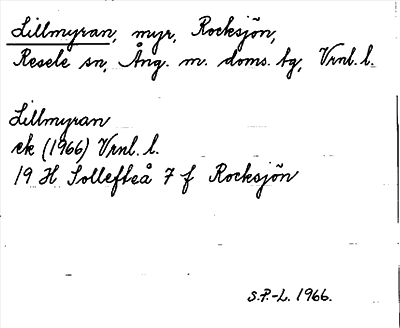 Lillmyran, myr, Rocksjön,
Resele sn, Ång. m. doms. tg, Vrnl. l.
Lillmyran
ek (1966) Vrnl. l.
19 H Sollefteå 7 f Rocksjön
S.P.-L. 1966.